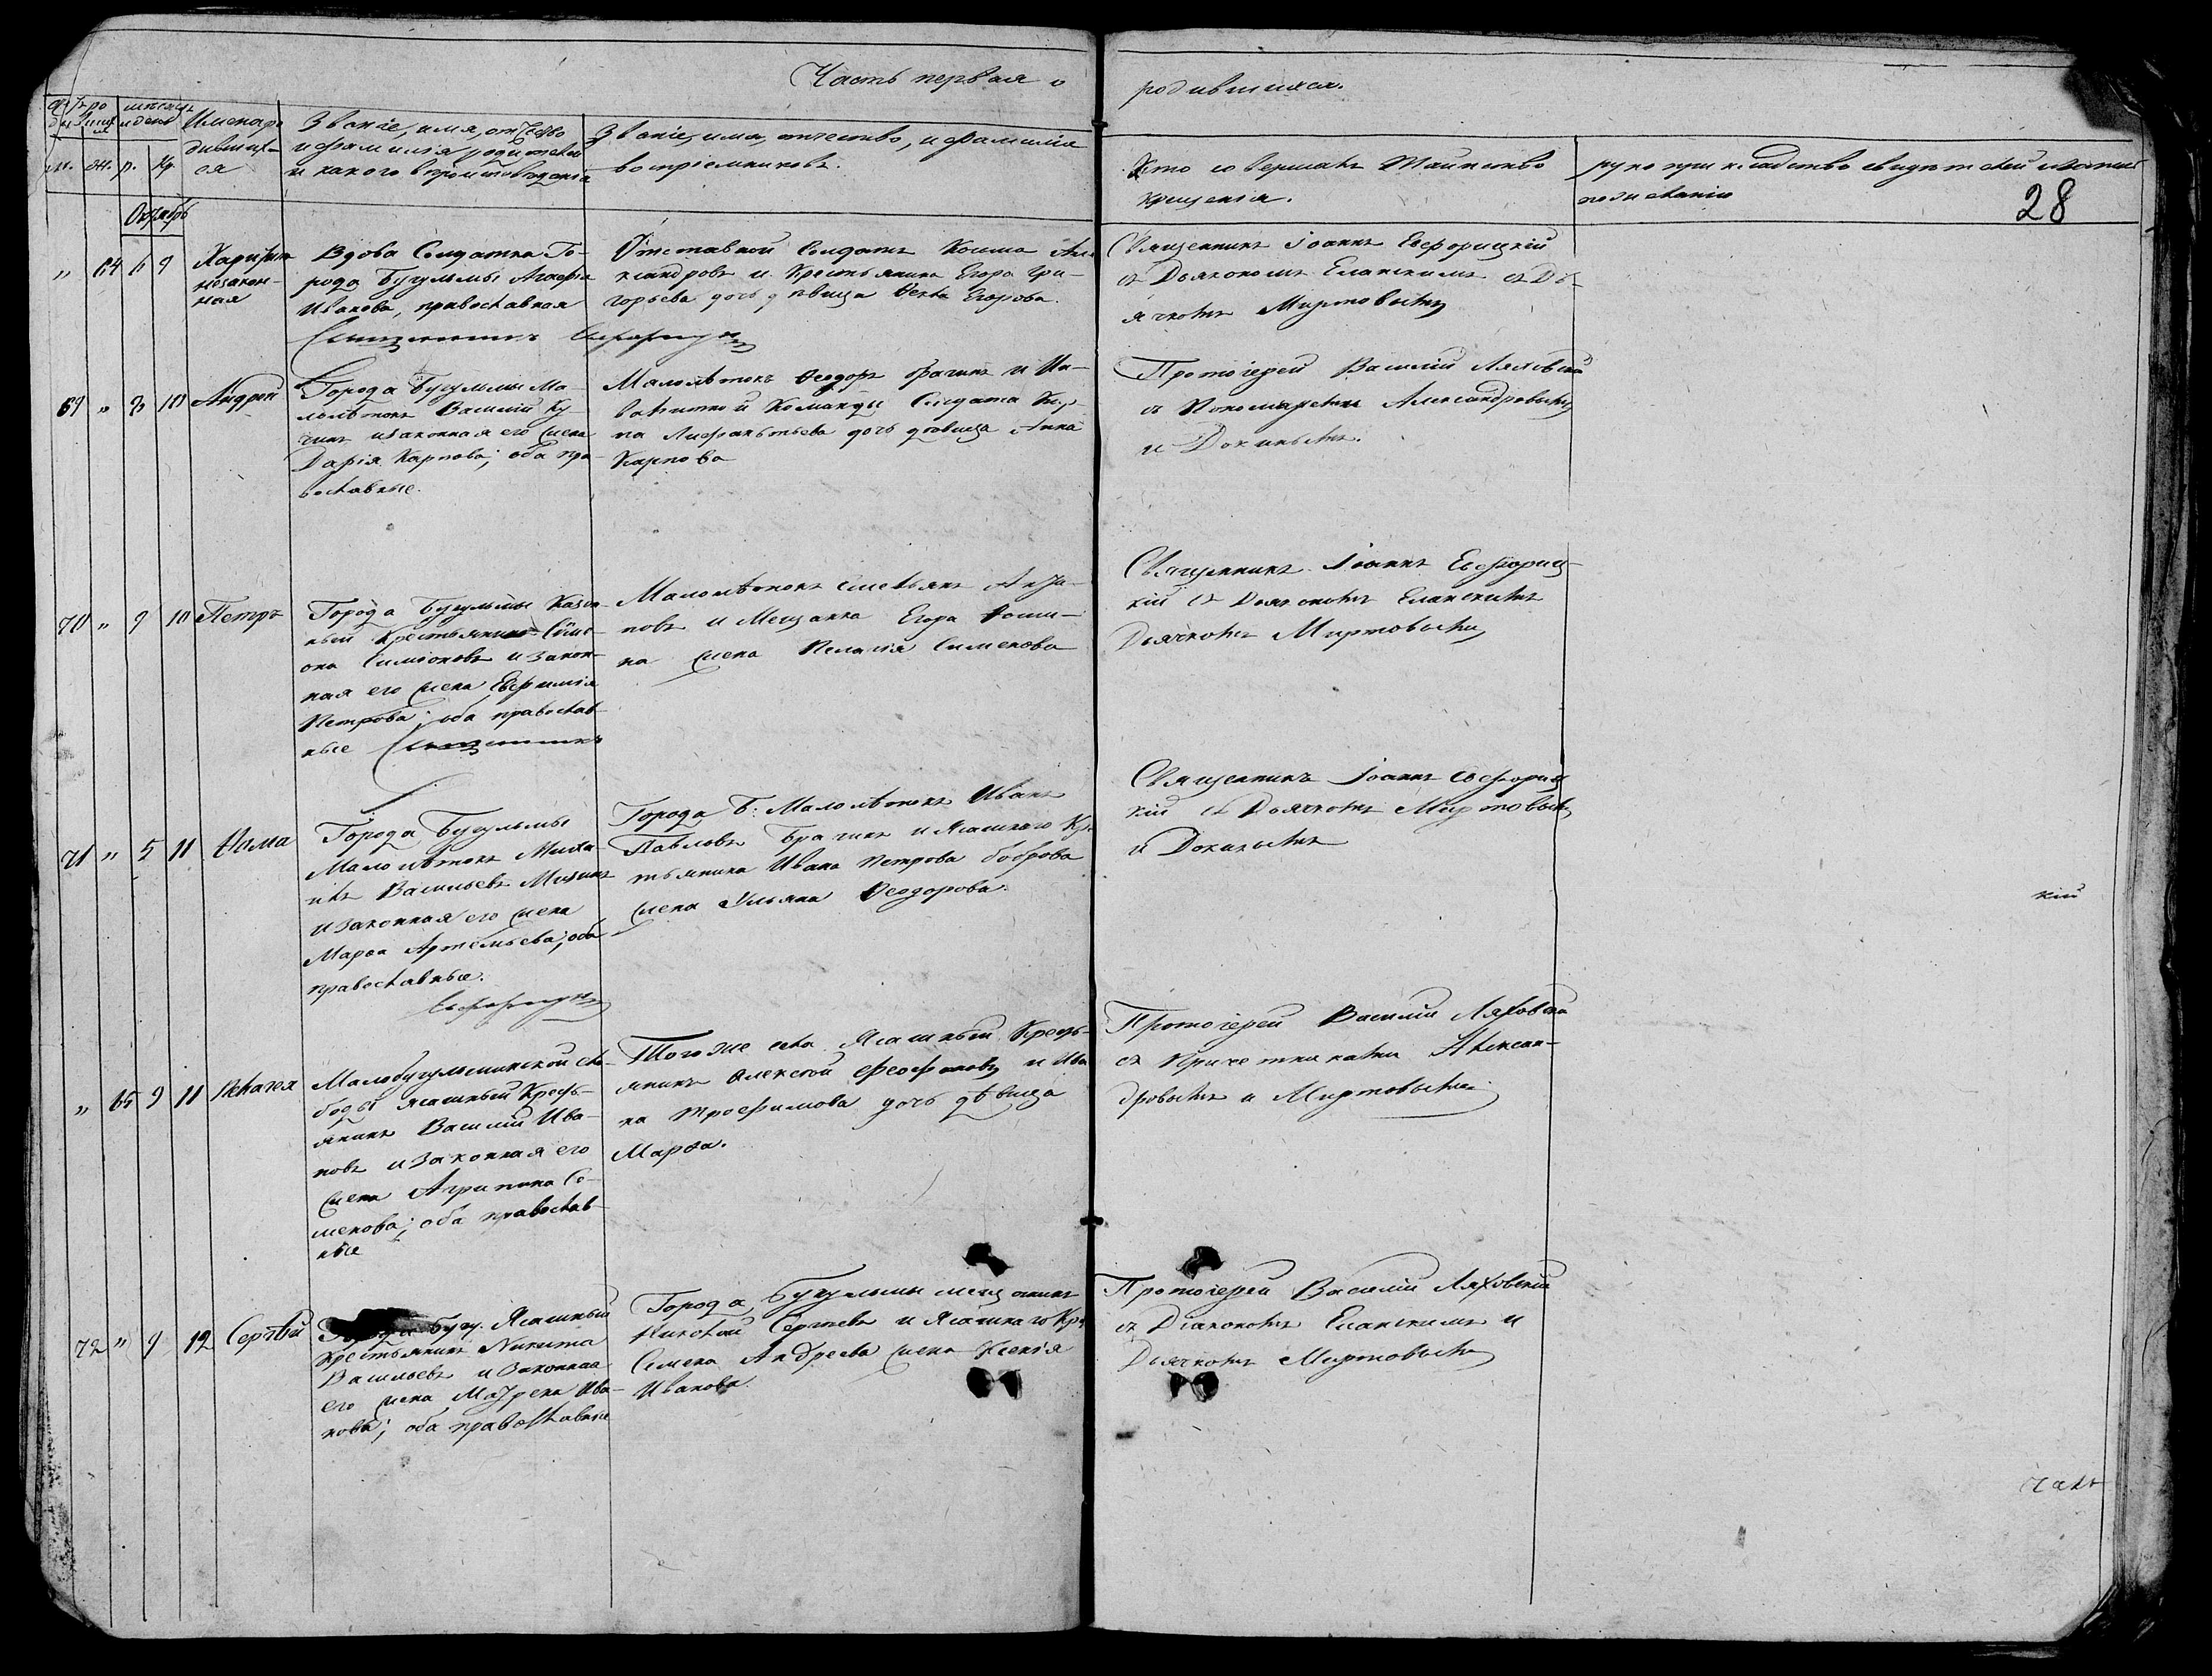 Часть первая о родившихся.
мѣсяцъ и день
Имена родившихся
Званіе, имя, отчество
и фамилія родителей
и какого вѣроисповѣданія
Званіе, имя, отчество, и фамилія
воспріемниковъ.
Кто совершалъ Таинство
крещенія.
рукоприкладство свидѣтелей
28
м. ж. р. кр.
Октябрь
" 64 9
незакон-
ная
Вдова Солдатка Го-
рода Бугульмы Агафья
Иванова, православная
Отставной Солдатъ Косма Але
ксандровъ и Крестьянина Егора Гри-
горьева дочь дѣвица Ѳекла Егорова.
Священникъ Іоаннъ
съ Дьякономъ Еланскимъ съ Дь-
ячкомъ Миртовымъ
Священникъ
69 " 10 Андрей
Города Бугульмы Ма-
лолѣтокъ Василій Ку-
и законная его жена
Дарія Карпова; оба пра-
вославные.
Малолѣтокъ Ѳеодоръ и Ин-
валидной Команды Солдата Кар-
па дочь дѣвица Анна
Карпова
Протоіерей Василій Ляховскій
съ Пономаремъ Александровымъ
и
70 " 9 10 Петръ
Города Бугульмы Казен-
ный Крестьянинъ Симе-
онъ Симеоновъ и закон-
ная его жена Евфимія
Петрова; оба православ-
ные Священникъ
Малолѣтокъ Емельянъ
и Мещанина Егора Ѳоми-
на жена Пелагія Сименова
Священникъ Іоаннъ
кій съ Дьякономъ Еланскимъ
Дьячкомъ Миртовымъ
71 " 5 11 Ѳома
Города Бугульмы
Малолѣтокъ Миха-
илъ Васильевъ
и законная его жена
Марѳа Артемьева; оба
православные.
Города Б. Малолѣтокъ Иванъ
Павловъ и Ясашнаго Кре
стьянина Ивана Петрова Боброва
жена Ульяна Ѳеодорова.
Священникъ Іоаннъ
кій съ Дьячкомъ Миртовымъ
и
кій
" 65 9 11 Пелагея
Малобугульминской сло-
боды Ясашный Кресть-
янинъ Василій Ива-
новъ и Законная его
жена Агрипина Се-
менова; оба православ-
ные
Того же села Ясашный Кресть-
янинъ Алексѣй Феофановъ и Ива
на Трофимова дочь дѣвица
Марѳа.
Протоіерей Василій Ляховскій
съ Причетниками Алексан-
дровымъ и Миртовымъ
72 " 9 12 Сергѣй
Города Бугу. Ясашный
Крестьянинъ Никита
Васильевъ и Законная
его жена Матрена Ива-
нова; оба православные
Города Бугульмы мещанинъ
Николай Сергѣевъ и Ясашнаго Кре
Семена Андреева жена Ксенія
Иванова.
Протоіерей Василій Ляховскій
съ Діакономъ Еланскимъ и
Дьячкомъ Миртовымъ